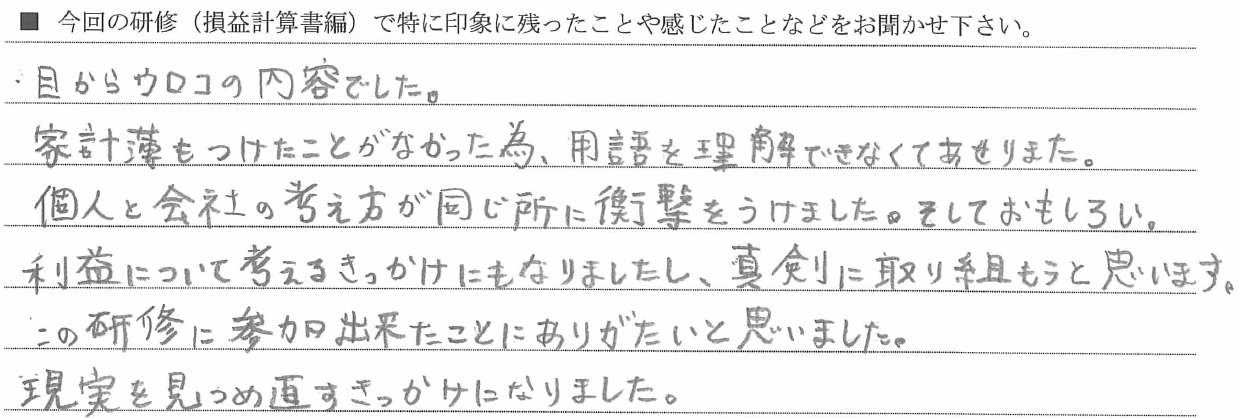 ■ 今回の研修（損益計算書編）で特に印象に残ったことや感じたことなどをお聞かせ下さい。
・目からウロコの内容でした。
家計薄もつけたことがなかった為、用語を理解できなくてあせりまた。
個人と会社の考え方が同じ所に衝撃をうけました。そしておもしろい。
利益について考えるきっかけにもなりましたし、真剣に取り組もうと思います。
この研修に参加出来たことにありがたいと思いました。
現実を見つめ直すきっかけになりました。